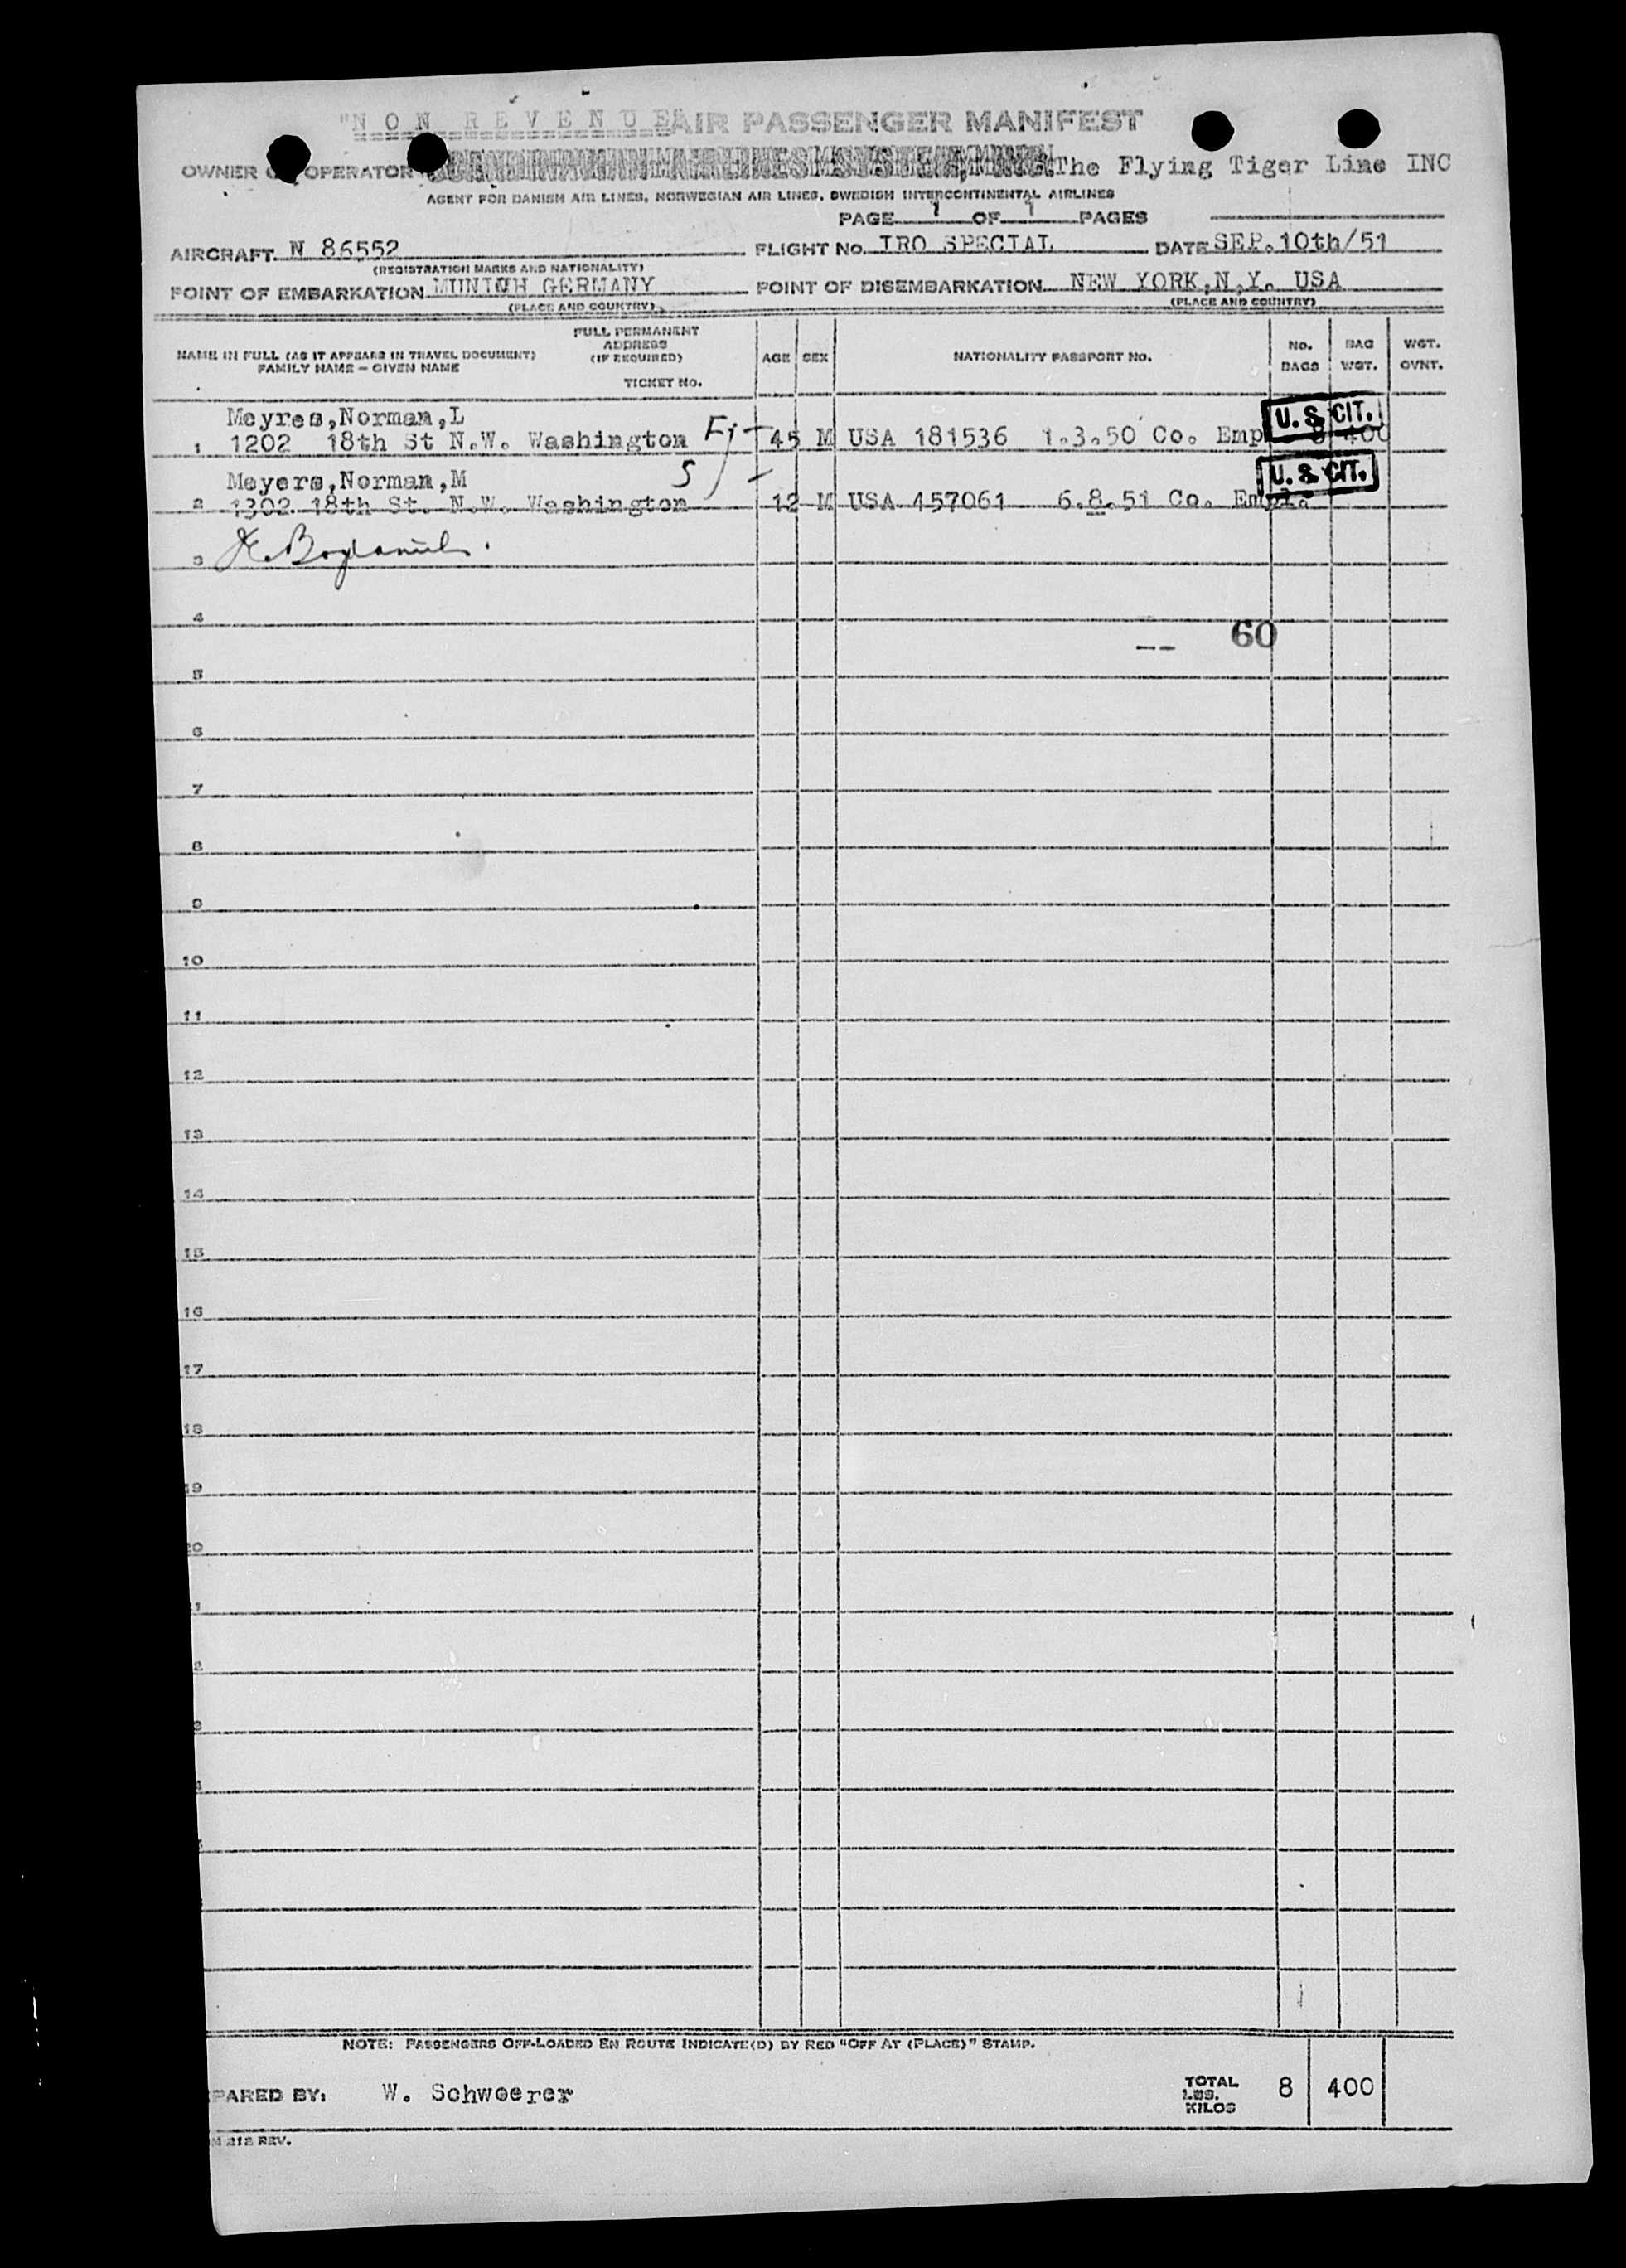 "N O N  R E V E N U E AIR PASSENGER MANIFEST
OWNER OR OPERATOR The Flying Tiger Line INC
AGENT FOR DANISH AIR LINES, NORWEGIAN AIR LINES, SWEDISH INTERCONTINENTAL AIRLINES
PAGE 1 OF 1 PAGES
AIRCRAFT N 86552 FLIGHT No. IRO SPECIAL DATE SEP.10th/51
(REGISTRATION MARKS AND NATIONALITY)
POINT OF EMBARKATION MUNICH GERMANY POINT OF DISEMBARKATION NEW YORK,N,Y. USA
(PLACE AND COUNTRY) (PLACE AND COUNTRY)
NAME IN FULL (AS IT APPEARS IN TRAVEL DOCUMENT) FAMILY NAME – GIVEN NAME FULL PERMANENT ADDRESS (IF REQUIRED) TICKET No. AGE SEX NATIONALITY PASSPORT No. No. BAGS BAG WGT. WGT. OVNT.
Meyres,Norman,L U. S. CIT.
1 1202 18th St N.W. Washington 45 M USA 181536 1.3.50 Co. Emp 8 400
Meyers,Norman,M U. S. CIT.
2 1302 18th St. N.W. Washington 12 M USA 457061 6.8.51 Co. Empl.
3
4
60
5
6
7
8
9
10
11
12
13
14
15
16
17
18
19
20
NOTE: PASSENGERS OFF-LOADED EN ROUTE INDICATE(D) BY RED "OFF AT (PLACE)" STAMP.
PARED BY: W. Schwoerer TOTAL LBS. KILOS 8 400
M 212 REV.